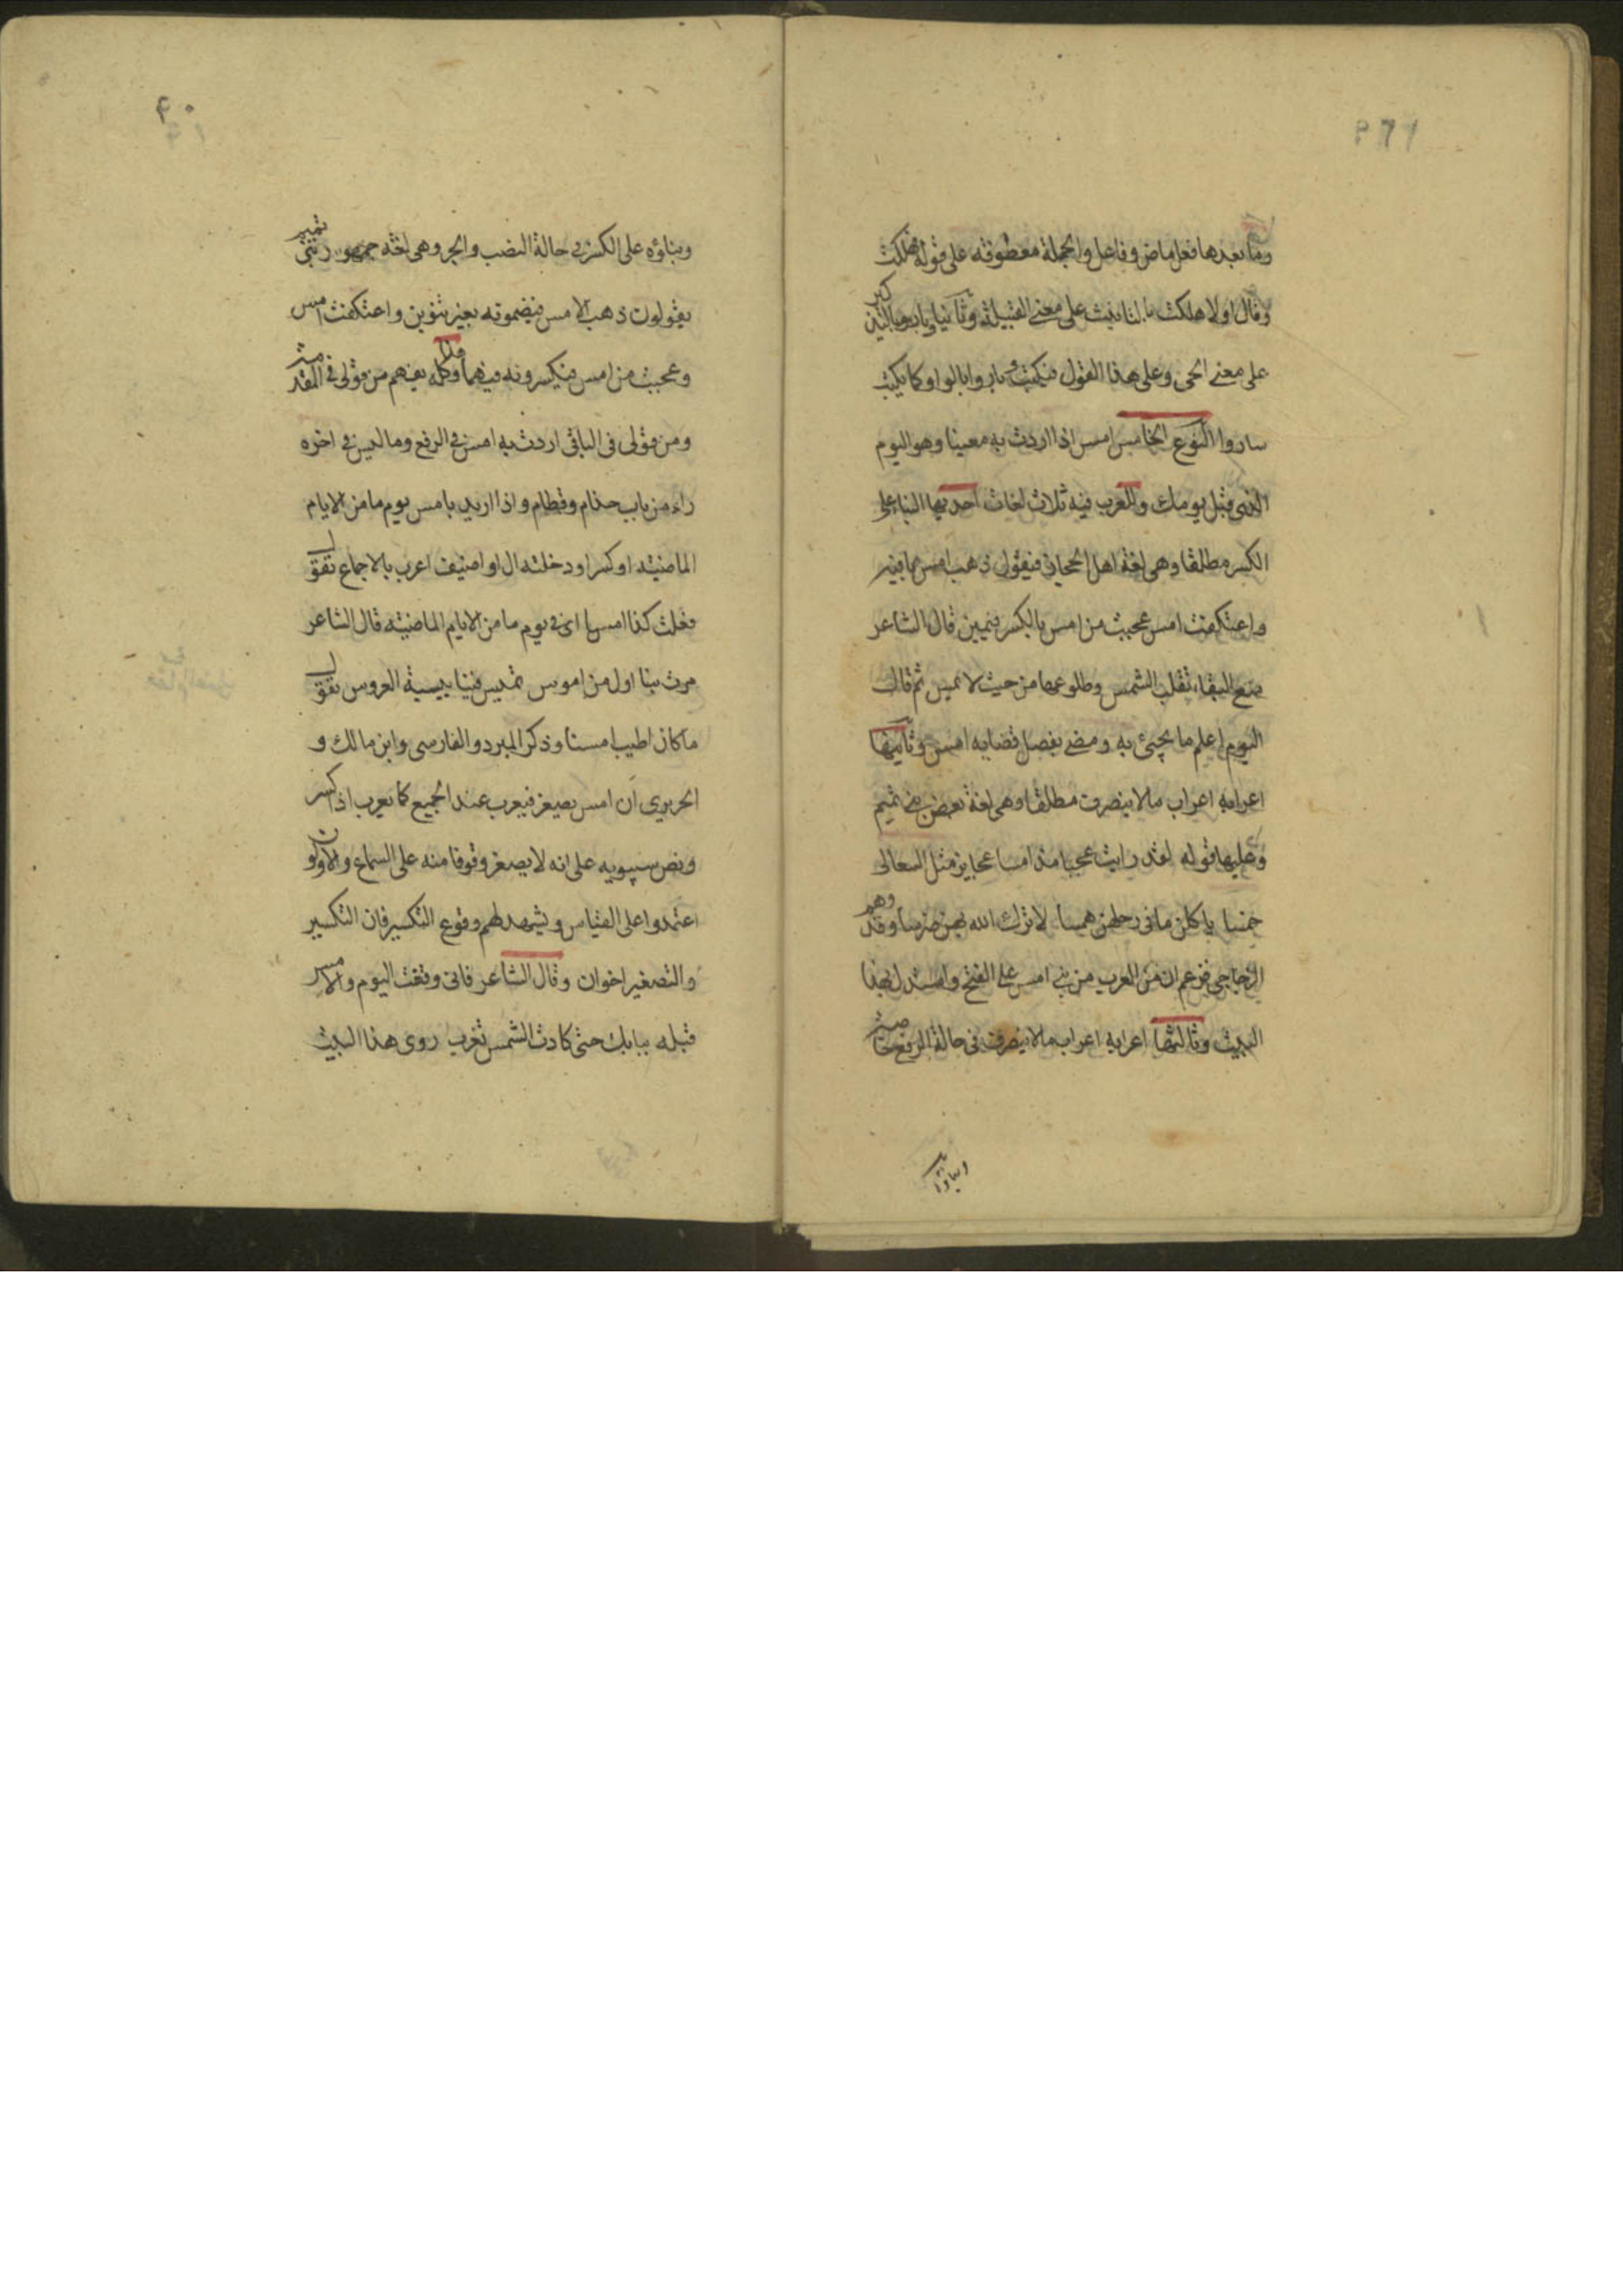 وما بعدها فعل ماض وفاعل والجملة معطوفة على قوله هلكت
وقال اولا هلكت بالتانيث على معنى القبيلة وثانيا وباروا بالتذكير
على معنى الحى وعلى هذا القول فيكتب وباروا بالواو كما يكتب
ساروا النوع الخامس امس اذا اردت به معينا وهو اليوم
الذى قبل يومك وللعرب فيه ثلاث لغات احديها البناء على
الكسر مطلقا وهى لغة اهل الحجاز فيقول ذهب امس بما فيه
واعتكفت امس عجبت من امس بالكسر فيهن قال الشاعر
منع البقاء تقلب الشمس وطلوعها من حيث لا تمس ثم قال
اليوم اعلم ما يجيئ به ومضى بفصل قضايه امس وثانيها
اعرابه اعراب ما لا ينصرف مطلقا وهى لغة بعض بنى تميم
وعليها قوله لقد رايت عجبا مذ امسا عجايز مثل السعالى
خمسا ياكلن ما فى رحلهن همسا لا ترك الله لهن ضرسا وقد وهم
الزجاجى فزعم ان من العرب من بنى امس على الفتح واستدل بهذا
البيت وثالثها اعرابه اعراب ما لا ينصرف فى حالة الرفع خاصة
وبناؤه
٩٠
وبناؤه على الكسر فى حالة النصب والجر وهى لغة جمهور بنى تميم
يقولون ذهب الامس فيضمونه بغير تنوين واعتكفت امس
وعجبت من امس فيكسرونه فيهما وكله يفهم من قولى فى المقدمة
ومن قولى فى الباقى اردت به امس فى الرفع وما ليس فى اخره
راء من باب حذام وقطام واذا اريد بامس يوم ما من الايام
الماضية او كسر او دخلته ال او اضيف اعرب بالاجماع تقول
فعلت كذا امسا اى فى يوم ما من الايام الماضية قال الشاعر
مرت بنا اول من اموس تميس فينا ميسة العروس تقول
ما كان اطيب امسنا وذكر المبرد والفارسى وابن مالك و
الحريرى ان امس يصغر فيعرب عند الجميع كما يعرب اذا كسر
ونص سيبويه على انه لا يصغر وقوفا منه على السماع والاولون
اعتمدوا على القياس ويشهد لهم وقوع التكسير فان التكسير
والتصغير اخوان وقال الشاعر فانى وقفت اليوم والامس
قبله ببابك حتى كادت الشمس تغرب روى هذا البيت